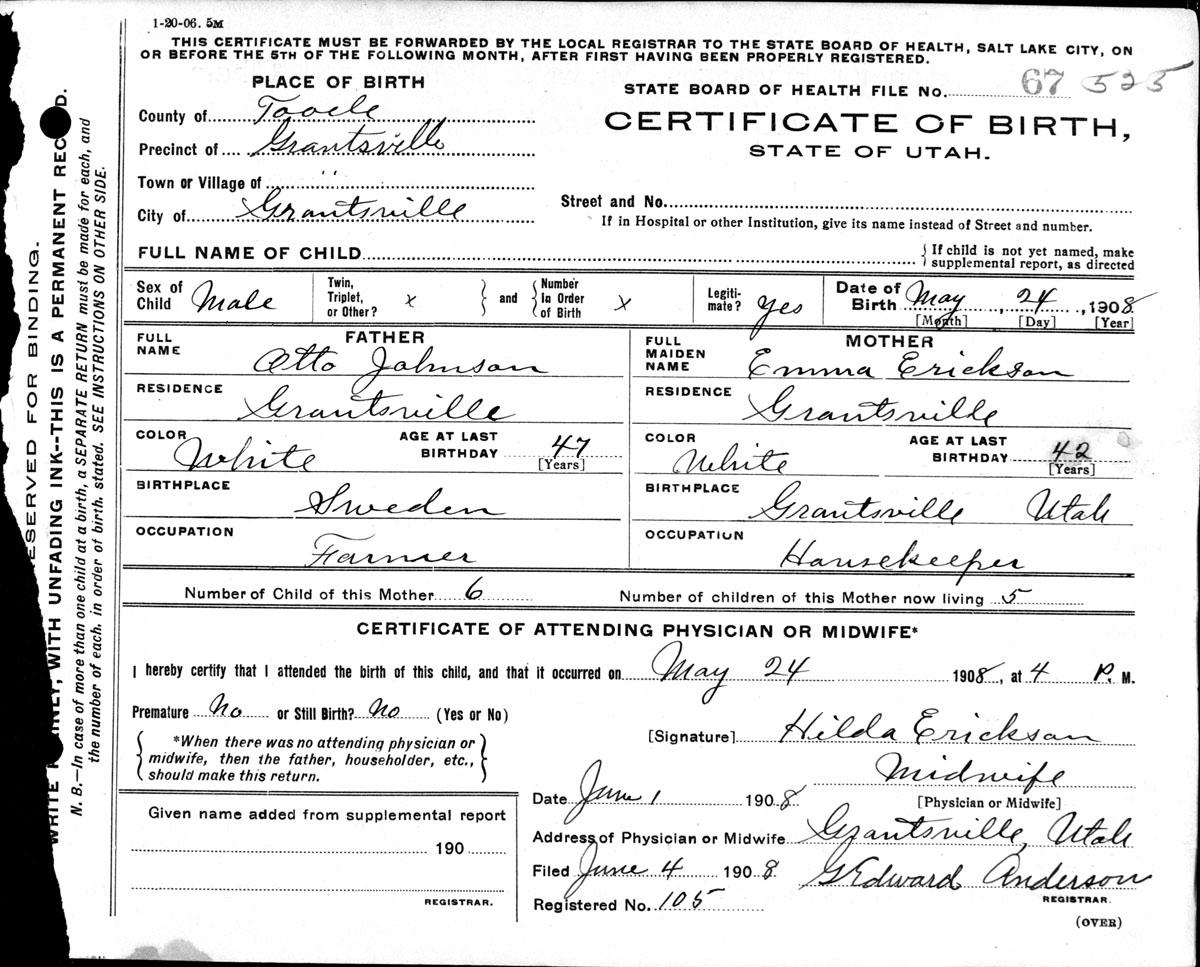 1-20-06. 5M
THIS CERTIFICATE MUST BE FORWARDED BY THE LOCAL REGISTRAR TO THE STATE BOARD OF HEALTH, SALT LAKE CITY, ON
OR BEFORE THE 5TH OF THE FOLLOWING MONTH, AFTER FIRST HAVING BEEN PROPERLY REGISTERED.
PLACE OF BIRTH
County of Tooele
Precinct of Grantsville
Town or Village of "
City of Grantsville
STATE BOARD OF HEALTH FILE No. 67 525
CERTIFICATE OF BIRTH,
STATE OF UTAH.
Street and No.
If in Hospital or other Institution, give its name instead of Street and number.
FULL NAME OF CHILD
{If child is not yet named, make
supplemental report, as directed
Sex of Child Male
Twin, Triplet, or Other? x } and { Number In Order of Birth x
Legiti-mate? yes
Date of Birth May, 24, 1908
[Month] [Day] [Year]
FATHER
FULL NAME Otto Johnson
RESIDENCE Grantsville
COLOR White AGE AT LAST BIRTHDAY 47
[Years]
BIRTHPLACE Sweden
OCCUPATION Farmer
MOTHER
FULL MAIDEN NAME Emma Erickson
RESIDENCE Grantsville
COLOR White AGE AT LAST BIRTHDAY 42
[Years]
BIRTHPLACE Grantsville Utah
OCCUPATION Housekeeper
Number of Child of this Mother 6 Number of children of this Mother now living 5
CERTIFICATE OF ATTENDING PHYSICIAN OR MIDWIFE*
I hereby certify that I attended the birth of this child, and that it occurred on May 24 1908, at 4 P. M.
Premature No or Still Birth? No (Yes or No)
{*When there was no attending physician or
midwife, then the father, householder, etc.,
should make this return.}
[Signature] Hilda Erickson
Midwife
[Physician or Midwife]
Date June 1 1908
Address of Physician or Midwife Grantsville, Utah
Filed June 4 1908 G Edward Anderson
REGISTRAR.
Registered No. 105
(OVER)
Given name added from supplemental report
190
REGISTRAR.
ESERVED FOR BINDING.
WRITE LAINLY, WITH UNFADING INK--THIS IS A PERMANENT REC D.
N. B.—In case of more than one child at a birth, a SEPARATE RETURN must be made for each, and
the number of each, in order of birth, stated. SEE INSTRUCTIONS ON OTHER SIDE.